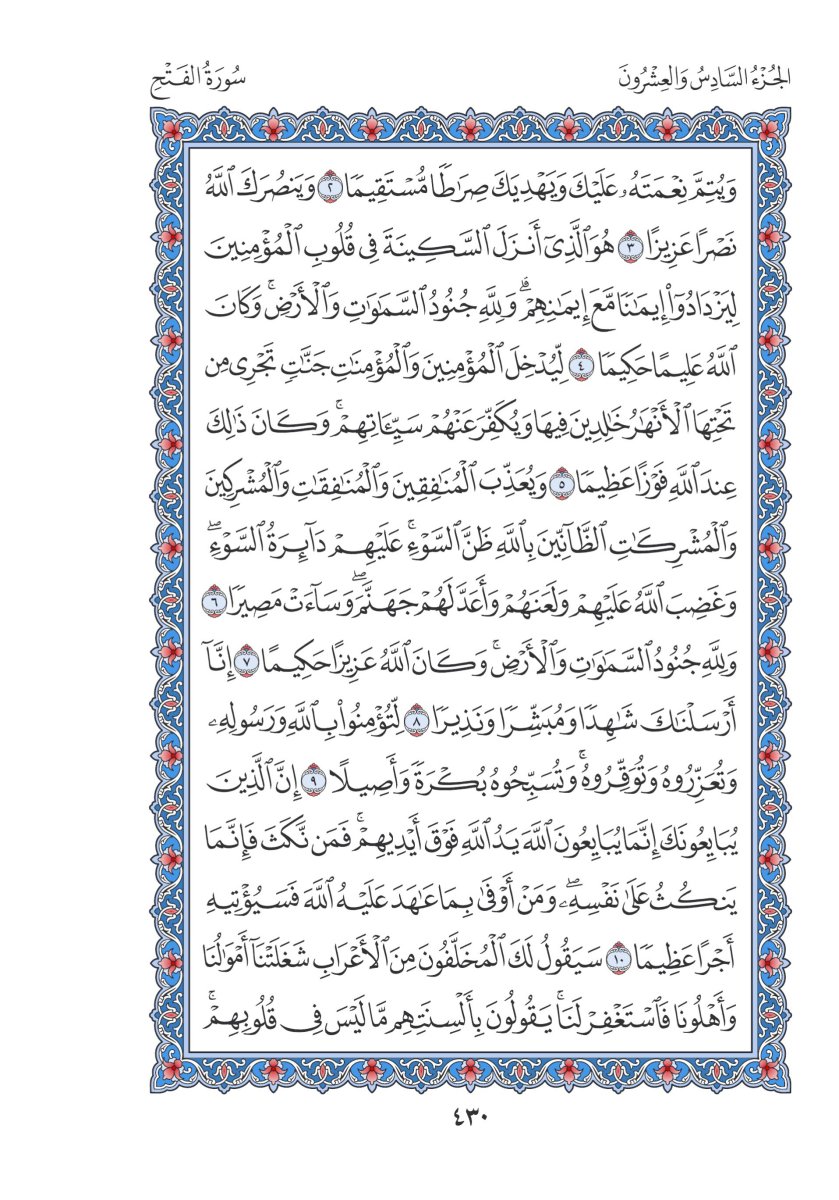 الجُزْءُ السَّادِسُ وَالعِشْرُونَ
سُورَةُ الفَتْحِ
وَيُتِمَّ نِعْمَتَهُۥ عَلَيْكَ وَيَهْدِيَكَ صِرَٰطًا مُّسْتَقِيمًا ٢ وَيَنصُرَكَ ٱللَّهُ
نَصْرًا عَزِيزًا ٣ هُوَ ٱلَّذِىٓ أَنزَلَ ٱلسَّكِينَةَ فِى قُلُوبِ ٱلْمُؤْمِنِينَ
لِيَزْدَادُوٓا۟ إِيمَٰنًا مَّعَ إِيمَٰنِهِمْ ۗ وَلِلَّهِ جُنُودُ ٱلسَّمَٰوَٰتِ وَٱلْأَرْضِ ۚ وَكَانَ
ٱللَّهُ عَلِيمًا حَكِيمًا ٤ لِّيُدْخِلَ ٱلْمُؤْمِنِينَ وَٱلْمُؤْمِنَٰتِ جَنَّٰتٍ تَجْرِى مِن
تَحْتِهَا ٱلْأَنْهَٰرُ خَٰلِدِينَ فِيهَا وَيُكَفِّرَ عَنْهُمْ سَيِّـَٔاتِهِمْ ۚ وَكَانَ ذَٰلِكَ
عِندَ ٱللَّهِ فَوْزًا عَظِيمًا ٥ وَيُعَذِّبَ ٱلْمُنَٰفِقِينَ وَٱلْمُنَٰفِقَٰتِ وَٱلْمُشْرِكِينَ
وَٱلْمُشْرِكَٰتِ ٱلظَّآنِّينَ بِٱللَّهِ ظَنَّ ٱلسَّوْءِ ۚ عَلَيْهِمْ دَآئِرَةُ ٱلسَّوْءِ ۖ
وَغَضِبَ ٱللَّهُ عَلَيْهِمْ وَلَعَنَهُمْ وَأَعَدَّ لَهُمْ جَهَنَّمَ ۖ وَسَآءَتْ مَصِيرًا ٦
وَلِلَّهِ جُنُودُ ٱلسَّمَٰوَٰتِ وَٱلْأَرْضِ ۚ وَكَانَ ٱللَّهُ عَزِيزًا حَكِيمًا ٧ إِنَّآ
أَرْسَلْنَٰكَ شَٰهِدًا وَمُبَشِّرًا وَنَذِيرًا ٨ لِّتُؤْمِنُوا۟ بِٱللَّهِ وَرَسُولِهِۦ
وَتُعَزِّرُوهُ وَتُوَقِّرُوهُ ۚ وَتُسَبِّحُوهُ بُكْرَةً وَأَصِيلًا ٩ إِنَّ ٱلَّذِينَ
يُبَايِعُونَكَ إِنَّمَا يُبَايِعُونَ ٱللَّهَ يَدُ ٱللَّهِ فَوْقَ أَيْدِيهِمْ ۚ فَمَن نَّكَثَ فَإِنَّمَا
يَنكُثُ عَلَىٰ نَفْسِهِۦ ۖ وَمَنْ أَوْفَىٰ بِمَا عَٰهَدَ عَلَيْهُ ٱللَّهَ فَسَيُؤْتِيهِ
أَجْرًا عَظِيمًا ١٠ سَيَقُولُ لَكَ ٱلْمُخَلَّفُونَ مِنَ ٱلْأَعْرَابِ شَغَلَتْنَآ أَمْوَٰلُنَا
وَأَهْلُونَا فَٱسْتَغْفِرْ لَنَا ۚ يَقُولُونَ بِأَلْسِنَتِهِم مَّا لَيْسَ فِى قُلُوبِهِمْ ۚ
٤٣٠